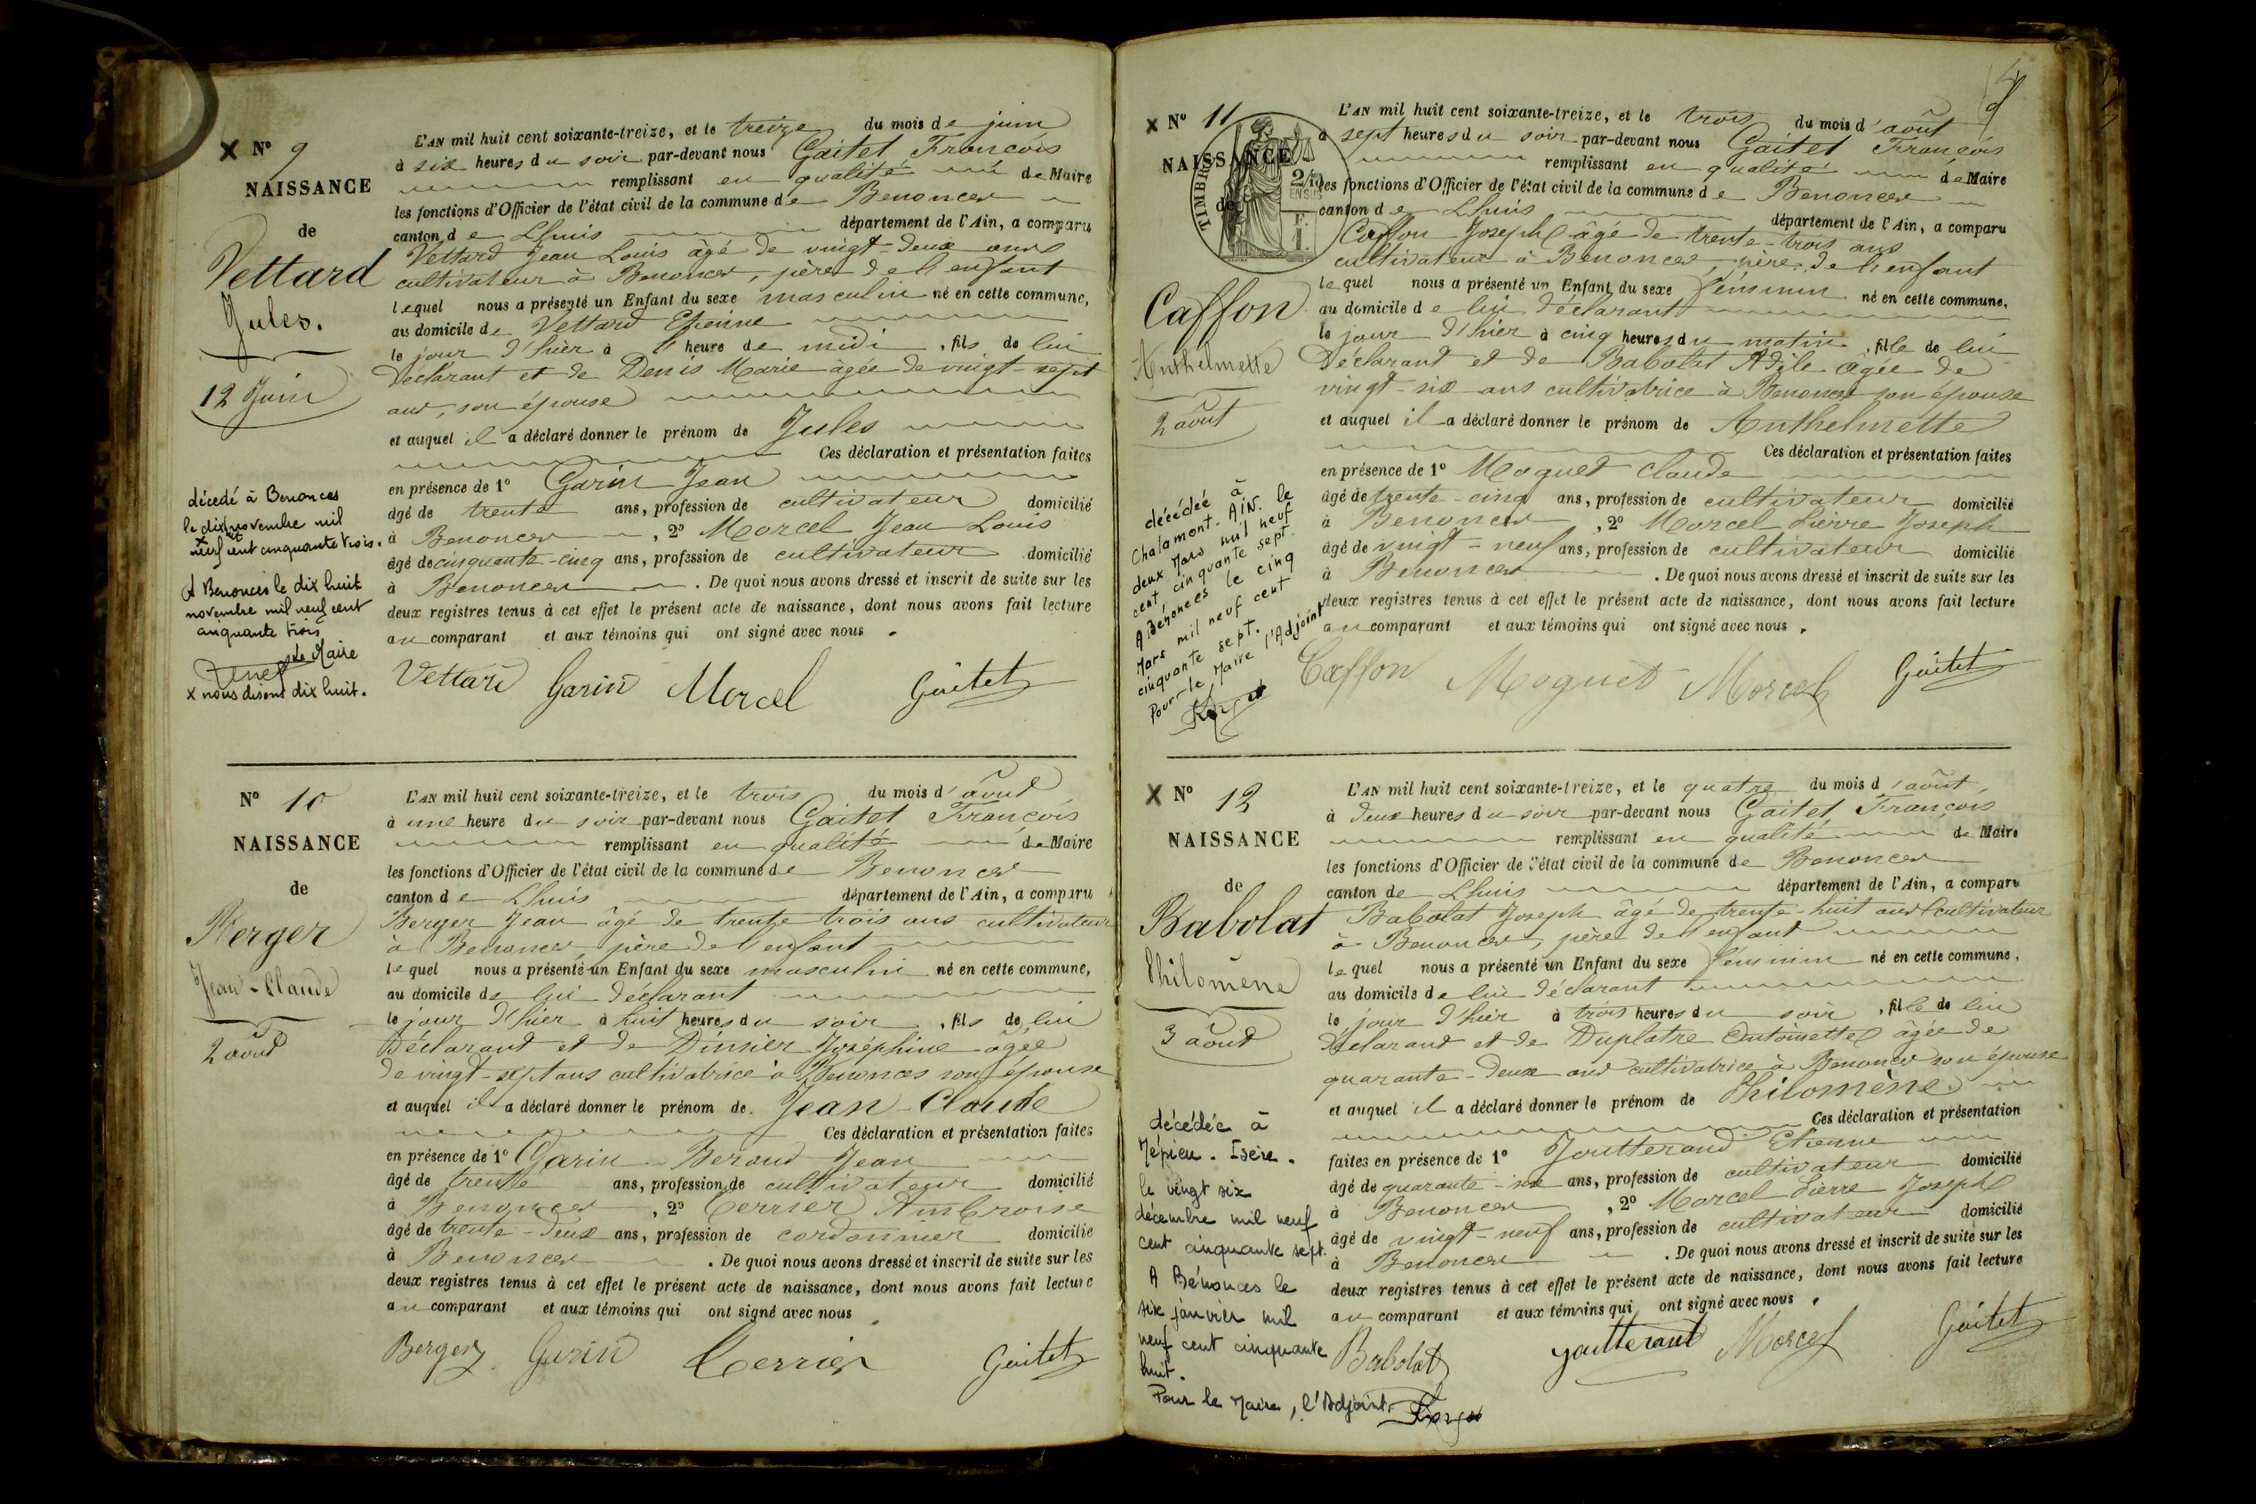 N° 9
NAISSANCE
de
Vettard
Jules.
12 Juin
L'AN mil huit cent soixante-treize, et le treize du mois de juin
à six heures du soir par-devant nous Gaitet François
remplissant en qualité de Maire
les fonctions d'Officier de l'état civil de la commune de Benonces
canton de Lhuis département de l'Ain, a comparu
Vettard Jean Louis âgé de vingt-deux ans
cultivateur à Benonces, père de l'enfant
lequel nous a présenté un Enfant du sexe masculin né en cette commune,
au domicile de Vettard Etienne
le jour d'hier à heure de midi, fils de lui
déclarant et de Denis Marie agée de vingt-sept
ans, son épouse
et auquel il a déclaré donner le prénom de Jules
Ces déclaration et présentation faites
en présence de 1° Garin Jean
âgé de trente ans, profession de cultivateur domicilié
à Benonces, 2° Morcel Jean Louis
âgé de cinquante-cinq ans, profession de cultivateur domicilié
à Benonces. De quoi nous avons dressé et inscrit de suite sur les
deux registres tenus à cet effet le présent acte de naissance, dont nous avons fait lecture
au comparant et aux témoins qui ont signé avec nous.
Vettard Garin Morcel Gaitet
décédé à Benonces
le dix novembre mil
neuf cent cinquante trois.
A Benonces le dix huit
novembre mil neuf cent
cinquante trois
Le Maire
x nous disons dix huit.
N° 10
NAISSANCE
de
Berger
Jean-Claude
2 août
L'AN mil huit cent soixante-treize, et le trois du mois d'août
à une heure du soir par-devant nous Gaitet François
remplissant en qualité de Maire
les fonctions d'Officier de l'état civil de la commune de Benonces
canton de Lhuis département de l'Ain, a comparu
Berger Jean âgé de trente trois ans cultivateur
à Benonces, père de l'enfant
lequel nous a présenté un Enfant du sexe masculin né en cette commune,
au domicile de lui déclarant
le jour d'hier à huit heures du soir, fils de lui
déclarant et de Dinsier Joséphine agée
de vingt-sept ans cultivatrice à Benonces son épouse
et auquel il a déclaré donner le prénom de Jean-Claude
Ces déclaration et présentation faites
en présence de 1° Garin Beraud Jean
âgé de trente ans, profession de cultivateur domicilié
à Benonces, 2° Cerrier Ambroise
âgé de trente-deux ans, profession de cordonnier domicilié
à Benonces. De quoi nous avons dressé et inscrit de suite sur les
deux registres tenus à cet effet le présent acte de naissance, dont nous avons fait lecture
au comparant et aux témoins qui ont signé avec nous
Berger Garin Cerrier Gaitet
N° 11
NAISSANCE
de
TIMBRE
2/10
EN SUS
Caffon
Anthelmette
2 août
L'AN mil huit cent soixante-treize, et le trois du mois d'août
à sept heures du soir par-devant nous Gaitet François
remplissant en qualité de Maire
les fonctions d'Officier de l'état civil de la commune de Benonces
canton de Lhuis département de l'Ain, a comparu
Caffon Joseph âgé de trente-trois ans
cultivateur à Benonces, père de l'enfant
lequel nous a présenté un Enfant du sexe féminin né en cette commune,
au domicile de lui déclarant
le jour d'hier à cinq heures du matin, fille de lui
déclarant et de Babolat Adèle agée de
vingt-six ans cultivatrice à Benonces son épouse
et auquel il a déclaré donner le prénom de Anthelmette
Ces déclaration et présentation faites
en présence de 1° Moguet Claude
âgé de trente-cinq ans, profession de cultivateur domicilié
à Benonces, 2° Morcel Pierre Joseph
âgé de vingt-neuf ans, profession de cultivateur domicilié
à Benonces. De quoi nous avons dressé et inscrit de suite sur les
deux registres tenus à cet effet le présent acte de naissance, dont nous avons fait lecture
au comparant et aux témoins qui ont signé avec nous.
Caffon Moguet Morcel Gaitet
décédée à
Chalamont. AIN. le
deux Mars mil neuf
cent cinquante sept.
A Bénonces le cinq
Mars mil neuf cent
cinquante sept.
Pour le Maire l'Adjoint
N° 12
NAISSANCE
de
Babolat
Philomène
3 août
L'AN mil huit cent soixante-treize, et le quatre du mois d'août,
à deux heures du soir par-devant nous Gaitet François
remplissant en qualité de Maire
les fonctions d'Officier de l'état civil de la commune de Benonces
canton de Lhuis département de l'Ain, a comparu
Babolat Joseph âgé de trente-huit ans cultivateur
à Benonces, père de l'enfant
lequel nous a présenté un Enfant du sexe féminin né en cette commune,
au domicile de lui déclarant
le jour d'hier à trois heures du soir, fille de lui
déclarant et de Duplatre Antoinette âgée de
quarante-deux ans cultivatrice à Benonces son épouse
et auquel il a déclaré donner le prénom de Philomène
Ces déclaration et présentation
faites en présence de 1° Joutterand Etienne
âgé de quarante-six ans, profession de cultivateur domicilié
à Benonces, 2° Morcel Pierre Joseph
âgé de vingt-neuf ans, profession de cultivateur domicilié
à Benonces. De quoi nous avons dressé et inscrit de suite sur les
deux registres tenus à cet effet le présent acte de naissance, dont nous avons fait lecture
au comparant et aux témoins qui ont signé avec nous.
Babolat Joutterand Morcel Gaitet
décédée à
Mépieu. Isère.
le vingt six
décembre mil neuf
cent cinquante sept.
A Bénonces le
six janvier mil
neuf cent cinquante
huit.
Pour le Maire, l'Adjoint.